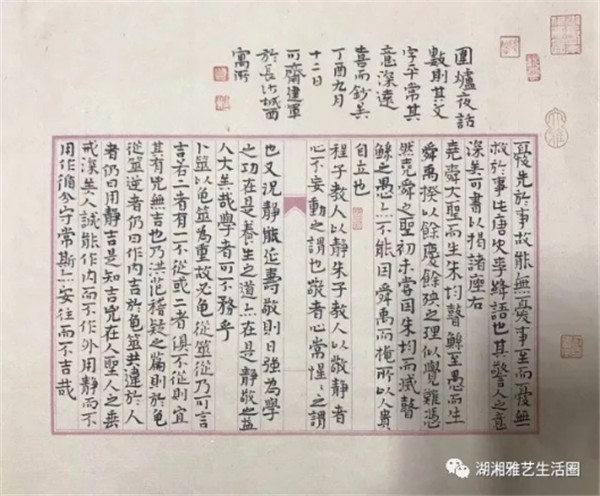 圍爐夜話
數則其文
字平常其
意深遠
喜而鈔矣
丁酉九月
十二日
可齋建軍
於長沙城西
寓所
憂先於事故能無憂事至而憂無
救於事此唐史李絳語也其警人之意
深矣可書以揭諸座右
堯舜大聖而生朱均瞽鯀至愚而生
舜禹揆以餘慶餘殃之理似覺難憑
然堯舜之聖初未嘗因朱均而減瞽
鯀之愚亦不能因舜禹而掩所以人貴
自立也
程子教人以靜朱子教人以敬靜者
心不妄動之謂也敬者心常惺々之謂
也又況靜能延壽敬則日強為學
之功在是養生之道亦在是靜敬之益
人大矣哉學者可不務乎
卜筮以龜筮為重故必龜從筮從乃可言
吉若二者有一不從或二者俱不從則宜
其有兇無吉也乃洪範稽疑之篇則於龜
從筮逆者仍曰作內吉於龜筮共違於人
者仍曰用靜吉是知吉兇在人聖人之垂
戒深矣人誠能作內而不作外用靜而不
用作循分守常斯亦安往而不吉哉
湖湘雅艺生活圈